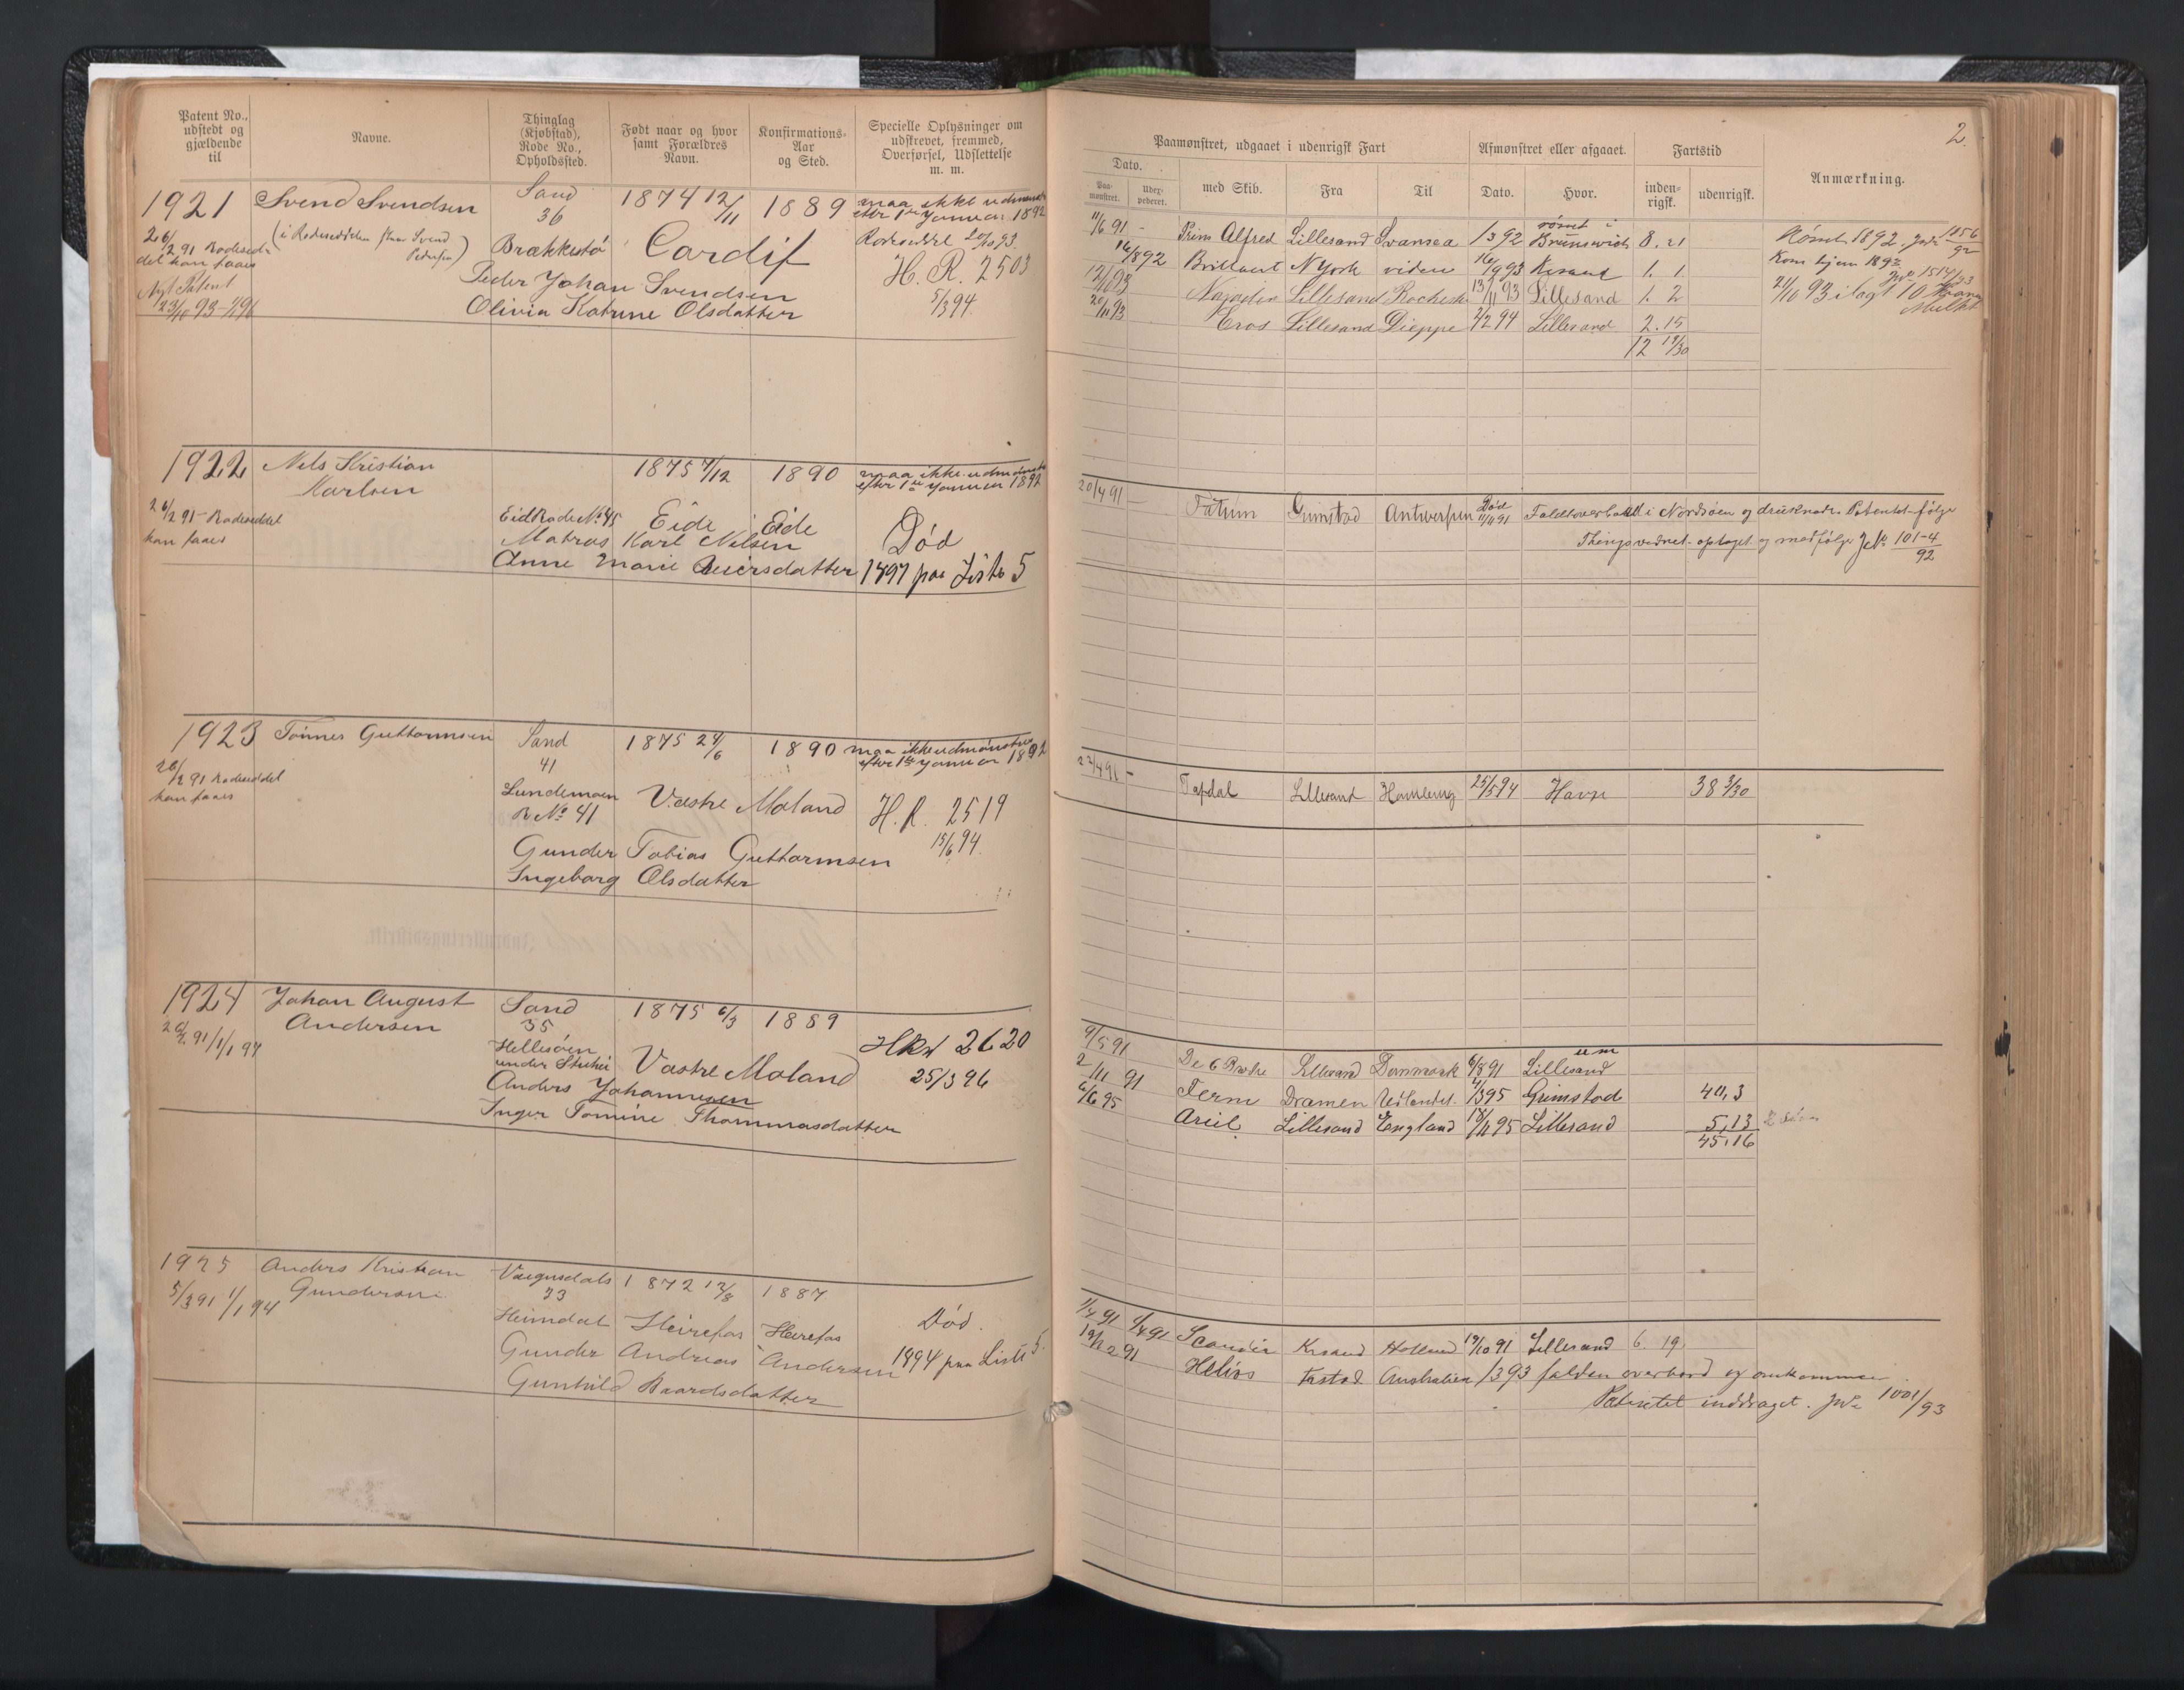 Patent No., udstedt og gjældende til
Navne.
Thinglag (Kjøbstad), Rode No., Opholdssted.
Født naar og hvor samt Forældres Navn.
Konfirmations-Aar og Sted.
Specielle Oplysninger om udskrevet, fremmed, Overførsel, Udslettelse m. m.
1921 Svend Svendsen Sand 1874 12/11 1889 maa ikke udmønstres
36 efter 1ste Januar 1892
26/2 91 Rodesed- (i Rodeseddelen staar Svend Brækkestø Cardif Rodeseddel 20/10 93.
del kan faaes Pedersen) H. R. 2503
Nyt Patent Peder Johan Svendsen 5/3 94.
23/10 93-1/1 96 Olivia Katrine Olsdatter
1922 Nils Kristian 1875 7/12 1890 maa ikke udmønstres
Karlsen efter 1ste Januar 1892
26/2 91 - Rodeseddel Eid Rode No 45 Eide Eide
kan faaes Matros Karl Nilsen Død
Anne Marie Reiersdatter 1891 paa Liste 5
1923 Tønnes Guttormsen Sand 1875 24/6 1890 maa ikke udmønstres
41 efter 1ste Januar 1892
26/2 91 Rodeseddel
kan faaes Lundemoen Vestre Moland H. R. 2519
R No 41 15/6 94.
Gunder Tobias Guttormsen
Ingeborg Olsdatter
1924 Johan August Sand 1875 6/3 1889
Andersen 35
26/2 91 1/1 97 Hellesøen Vestre Moland 2620
under 25/3 96
Anders Johannesen
Inger Tomine Thommasdatter
1925 Anders Kristian 1872 12/8 1887
Gundersen 33
5/3 91 1/1 94 Heimdal Heirefos Heirefos Død.
Gunder Andreas Andersen 1894 paa Liste 5.
Gunhild Baardsdatter
2.
Paamønstret, udgaaet i udenrigsk Fart
Afmønstret eller afgaaet.
Fartstid
Anmærkning.
Dato.
Paa-mønstret.
Udex-pederet.
med Skib.
Fra
Til
Dato.
Hvor.
inden-rigsk.
udenrigsk.
11/6 91 - Prins Alfred Lillesand Swansea 1/3 92 rømt i Brunswick 8. 21 Rømt 1892. 1056/92
16/8 92 Brillant N York viden 16/9 93 Krsand 1. 1. Kom hjem 1893
12/10 93 Najaden Lillesand 13/11 93 Lillesand 1. 2 21/10 93 ilagt 10 Kroner Mulkt
20/11 93 Eros Lillesand Dieppe 2/2 94 Lillesand 2. 15
12 19/30
20/4 91 - Fatum Grimstad Antwerpen Død 11/11 91 Faldt overbord i Nordsøen og druknede. Patentet følger
Thingsvidnet optaget og medfølger 101-4/92
22/4 91 - Topdal Lillesand Hamburg 25/5 94 Havre 38 3/30
9/5 91 De 6 Brødre Lillesand Danmark 6/8 91 Lillesand
2/11 91 Ferm Dramen Udlandet. 4/3 95 Grimstad 40,3
6/6 95 Ariel Lillesand England 18/11 95 Lillesand 5,13
45,16
1/4 91 1/4 91 Krsand Holland 19/10 91 Lillesand 6. 19.
19/12 91 Helios Australien 1/3 93 falden overbord og omkommen.
Patentet inddraget. 1001/93